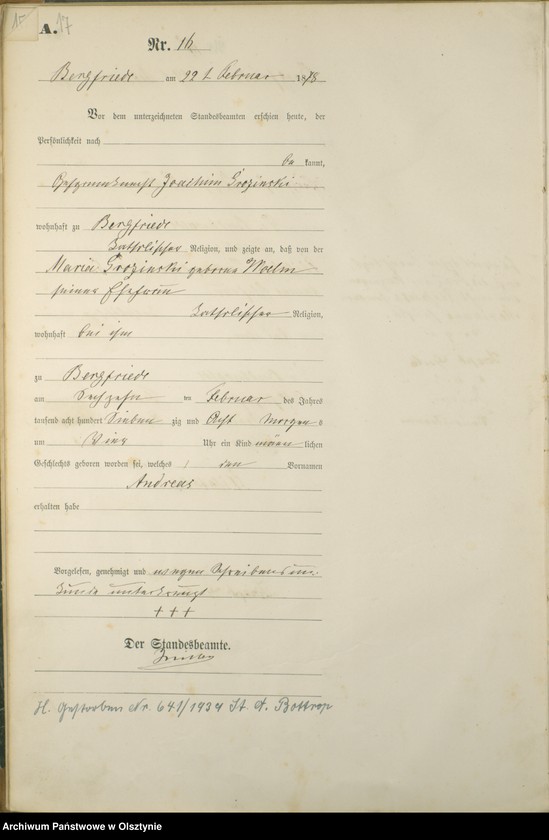 17
A.
Nr. 16
Bergfriede am 22 t Februar 1878
Vor dem unterzeichneten Standesbeamten erschien heute, der
Persönlichkeit nach
be kannt,
Joachim Grozinski
wohnhaft zu Bergfriede
Katholischer Religion, und zeigte an, daß von der
Maria Grozinski geborne
seiner Ehefrau
Katholischer Religion,
wohnhaft bei ihm
zu Bergfriede
am Sechzehn ten Februar des Jahres
tausend acht hundert Sieben zig und Acht Morgen s
um Vier Uhr ein Kind männ lichen
Geschlechts geboren worden sei, welches den Vornamen
Andreas
erhalten habe
Vorgelesen, genehmigt und wegen Schreibensun-
kunde unterkreuzt
+++
Der Standesbeamte.
H. Gestorben Nr. 641/1934 St. A. Bottrop
Archiwum Państwowe w Olsztynie